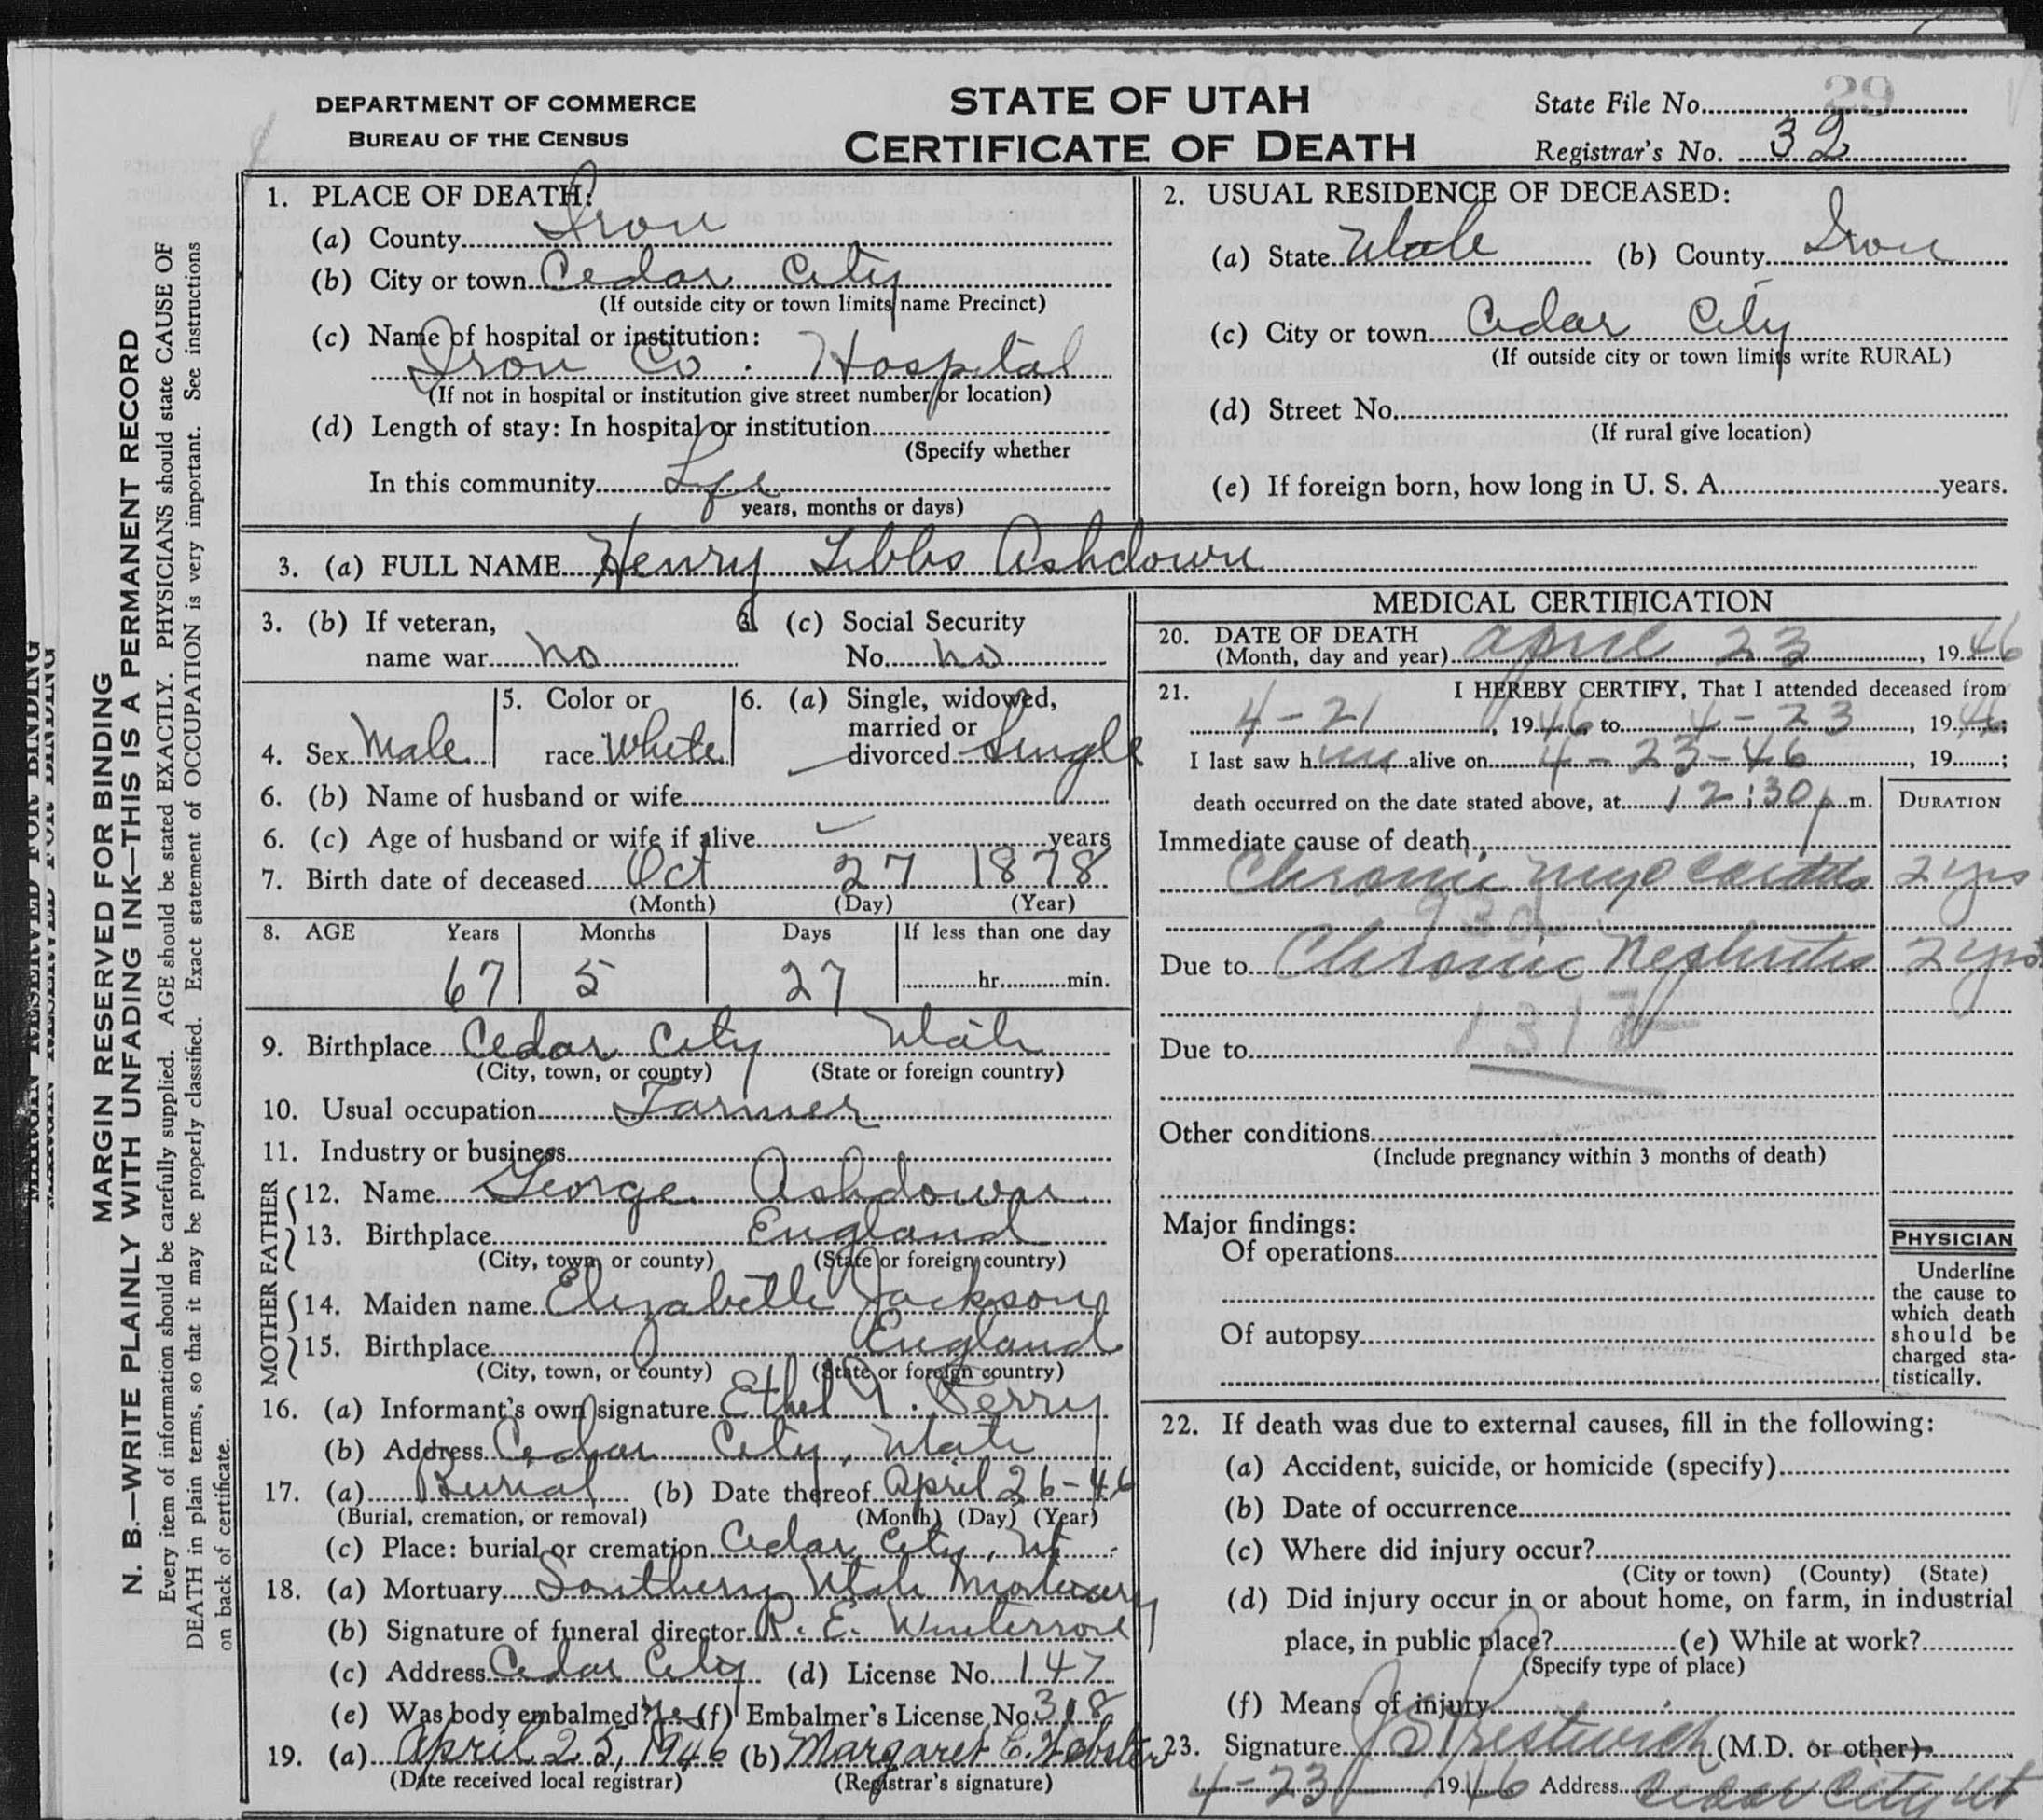 DEPARTMENT OF COMMERCE
BUREAU OF THE CENSUS
STATE OF UTAH
CERTIFICATE OF DEATH
State File No. 29
Registrar's No. 32
MARGIN RESERVED FOR BINDING
N. B.—WRITE PLAINLY WITH UNFADING INK—THIS IS A PERMANENT RECORD
Every item of information should be carefully supplied. AGE should be stated EXACTLY. PHYSICIANS should state CAUSE OF
DEATH in plain terms, so that it may be properly classified. Exact statement of OCCUPATION is very important. See instructions
on back of certificate.
1. PLACE OF DEATH:
(a) County Iron
(b) City or town Cedar City
(If outside city or town limits name Precinct)
(c) Name of hospital or institution:
Iron Co. Hospital
(If not in hospital or institution give street number or location)
(d) Length of stay: In hospital or institution
(Specify whether
In this community Life
years, months or days)
2. USUAL RESIDENCE OF DECEASED:
(a) State Utah (b) County Iron
(c) City or town Cedar City
(If outside city or town limits write RURAL)
(d) Street No.
(If rural give location)
(e) If foreign born, how long in U. S. A. years.
3. (a) FULL NAME Henry Tibbs Ashdown
3. (b) If veteran, name war no
3 (c) Social Security No. no
4. Sex Male
5. Color or race White
6. (a) Single, widowed, married or divorced Single
6. (b) Name of husband or wife
6. (c) Age of husband or wife if alive years
7. Birth date of deceased Oct 27 1878
(Month) (Day) (Year)
8. AGE Years Months Days If less than one day
67 5 27 hr. min.
9. Birthplace Cedar City Utah
(City, town, or county) (State or foreign country)
10. Usual occupation Farmer
11. Industry or business
FATHER
12. Name George Ashdown
13. Birthplace England
(City, town, or county) (State or foreign country)
MOTHER
14. Maiden name Elizabeth Jackson
15. Birthplace England
(City, town, or county) (State or foreign country)
16. (a) Informant's own signature Ethel J. Perry
(b) Address Cedar City, Utah
17. (a) Burial (b) Date thereof April 26-46
(Burial, cremation, or removal) (Month) (Day) (Year)
(c) Place: burial or cremation Cedar City, Ut.
18. (a) Mortuary Southern Utah Mortuary
(b) Signature of funeral director R. E. Winterrose
(c) Address Cedar City (d) License No. 147
(e) Was body embalmed? Yes (f) Embalmer's License No. 318
19. (a) April 25, 1946 (b) Margaret C. Webster
(Date received local registrar) (Registrar's signature)
MEDICAL CERTIFICATION
20. DATE OF DEATH
(Month, day and year) April 23, 1946
21. I HEREBY CERTIFY, That I attended deceased from
4-21, 1946 to 4-23, 1946;
I last saw him alive on 4-23-46, 19 ;
death occurred on the date stated above, at 12:30 p m.
DURATION
Immediate cause of death
Chronic Myocarditis 2 yrs
93d
Due to Chronic Nephritis 2 yrs
Due to
Other conditions
(Include pregnancy within 3 months of death)
Major findings:
Of operations
Of autopsy
PHYSICIAN
Underline
the cause to
which death
should be
charged sta-
tistically.
22. If death was due to external causes, fill in the following:
(a) Accident, suicide, or homicide (specify)
(b) Date of occurrence
(c) Where did injury occur?
(City or town) (County) (State)
(d) Did injury occur in or about home, on farm, in industrial
place, in public place? (e) While at work?
(Specify type of place)
(f) Means of injury
23. Signature J S Prestwich (M.D. or other)
4-23 1946 Address Cedar City Ut